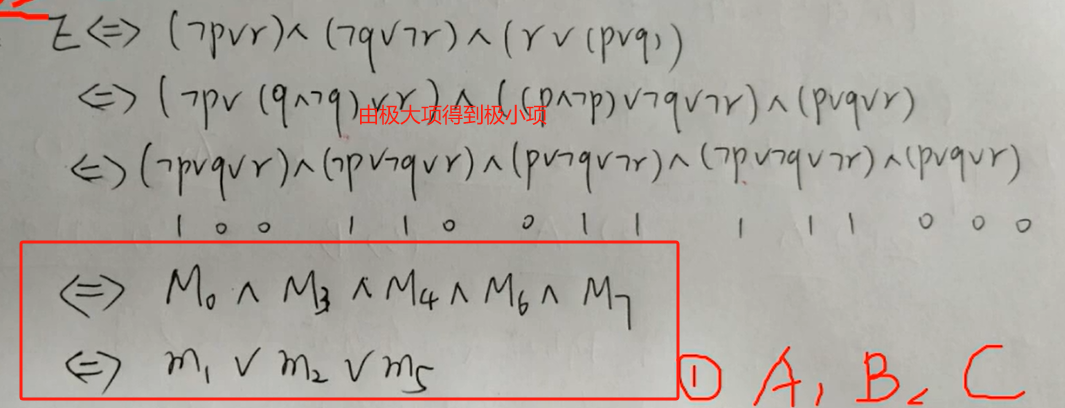 E⇔ (¬p∨r)∧(¬q∨¬r)∧(r∨(p∨q))
⇔ (¬p∨(q∧¬q)∨r)∧((p∧¬p)∨¬q∨¬r)∧(p∨q∨r)
由极大项得到极小项
⇔(¬p∨q∨r)∧(¬p∨¬q∨r)∧(p∨¬q∨¬r)∧(¬p∨¬q∨¬r)∧(p∨q∨r)
1 0 0 1 1 0 0 1 1 1 1 1 0 0 0
⇔ M₀ ∧ M₃ ∧ M₄ ∧ M₆ ∧ M₇
⇔ m₁ ∨ m₂ ∨ m₅
① A, B, C